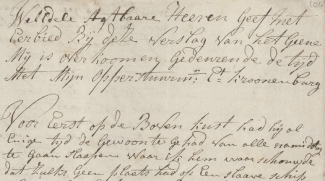 WelEdele Agtbaare Heeren Geef met
Eerbied Bij deze verslag van het Geene
Mij is over koomen Geduurende de tijd
Met Mijn Opperstuurm: C: Kroonenburg
Voor Eerst op de Boven kust had hij al
Enige tijd de Gewoonte gehad van alle
te Gaan Slaapen Waar ik hem waar schouwde
dat zulks Geen plaats had op Een slaave schip